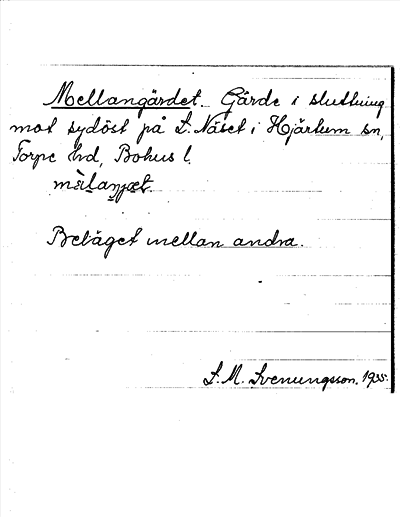 Mellangärdet. Gärde i sluttning
mot sydöst på L. Näset i Hjärtum sn,
Torpe hd, Bohus l.
Beläget mellan andra.
S. M. Svenungsson. 1935.